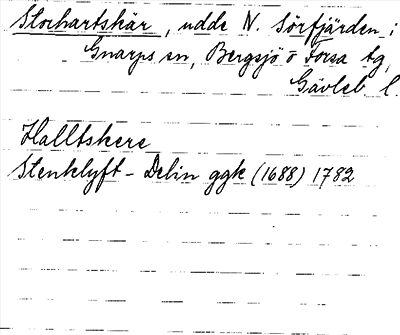 Storhartskär, udde N. Sörfjärden i
Gnarps sn, Bergsjö o Forsa tg,
Gävleb l.
Halltskere
Stenklyft - Delin ggk (1688) 1782